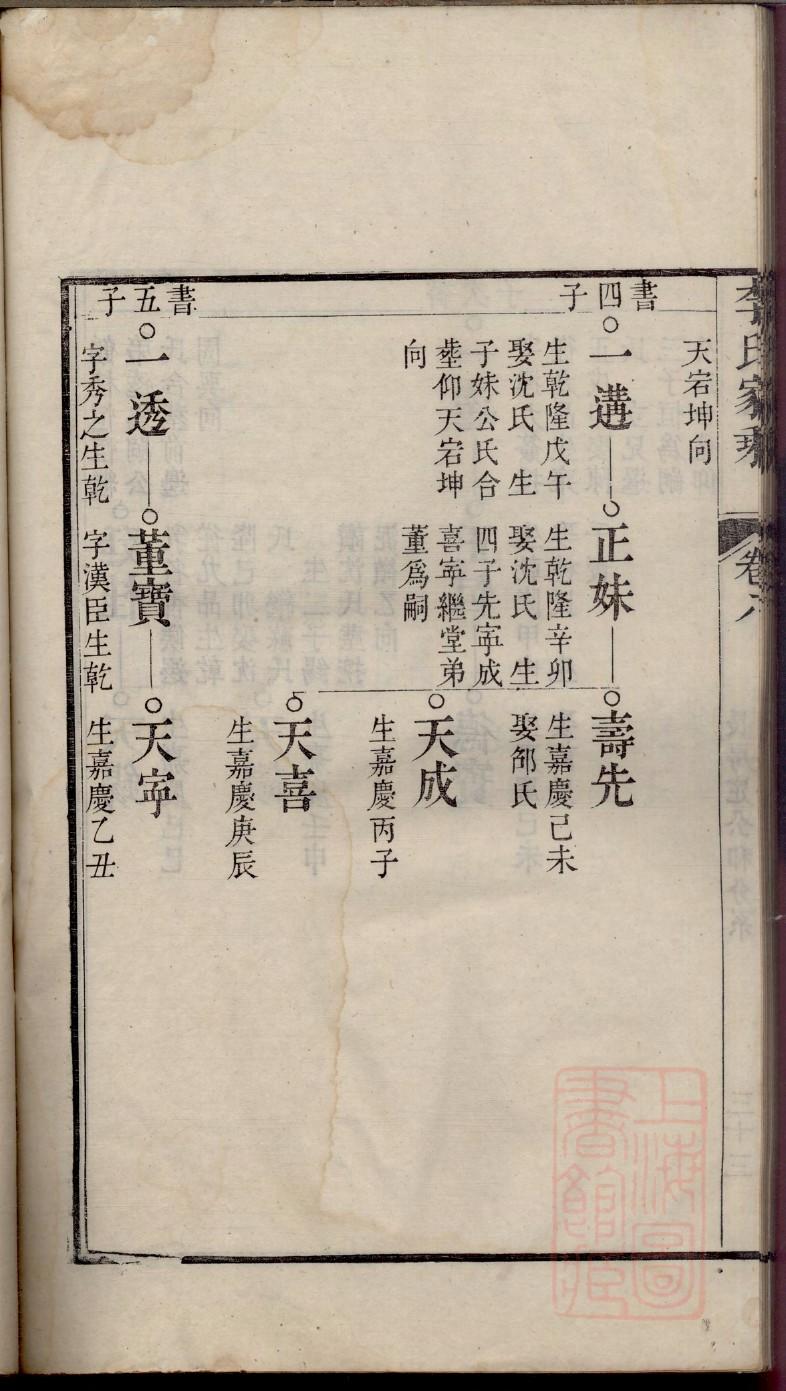 李氏家乘
卷六
天宕坤向
書四子
一遘
生乾隆戊午
娶沈氏生
子妹公氏合
塟仰天宕坤
向
正妹
生乾隆辛卯
娶沈氏生
四子先寕成
喜寕繼堂弟
董爲嗣
壽先
生嘉慶己未
娶邰氏
天成
生嘉慶丙子
天喜
生嘉慶庚辰
書五子
一透
字秀之生乾
董寶
字漢臣生乾
天寕
生嘉慶乙丑
上海圖書館藏